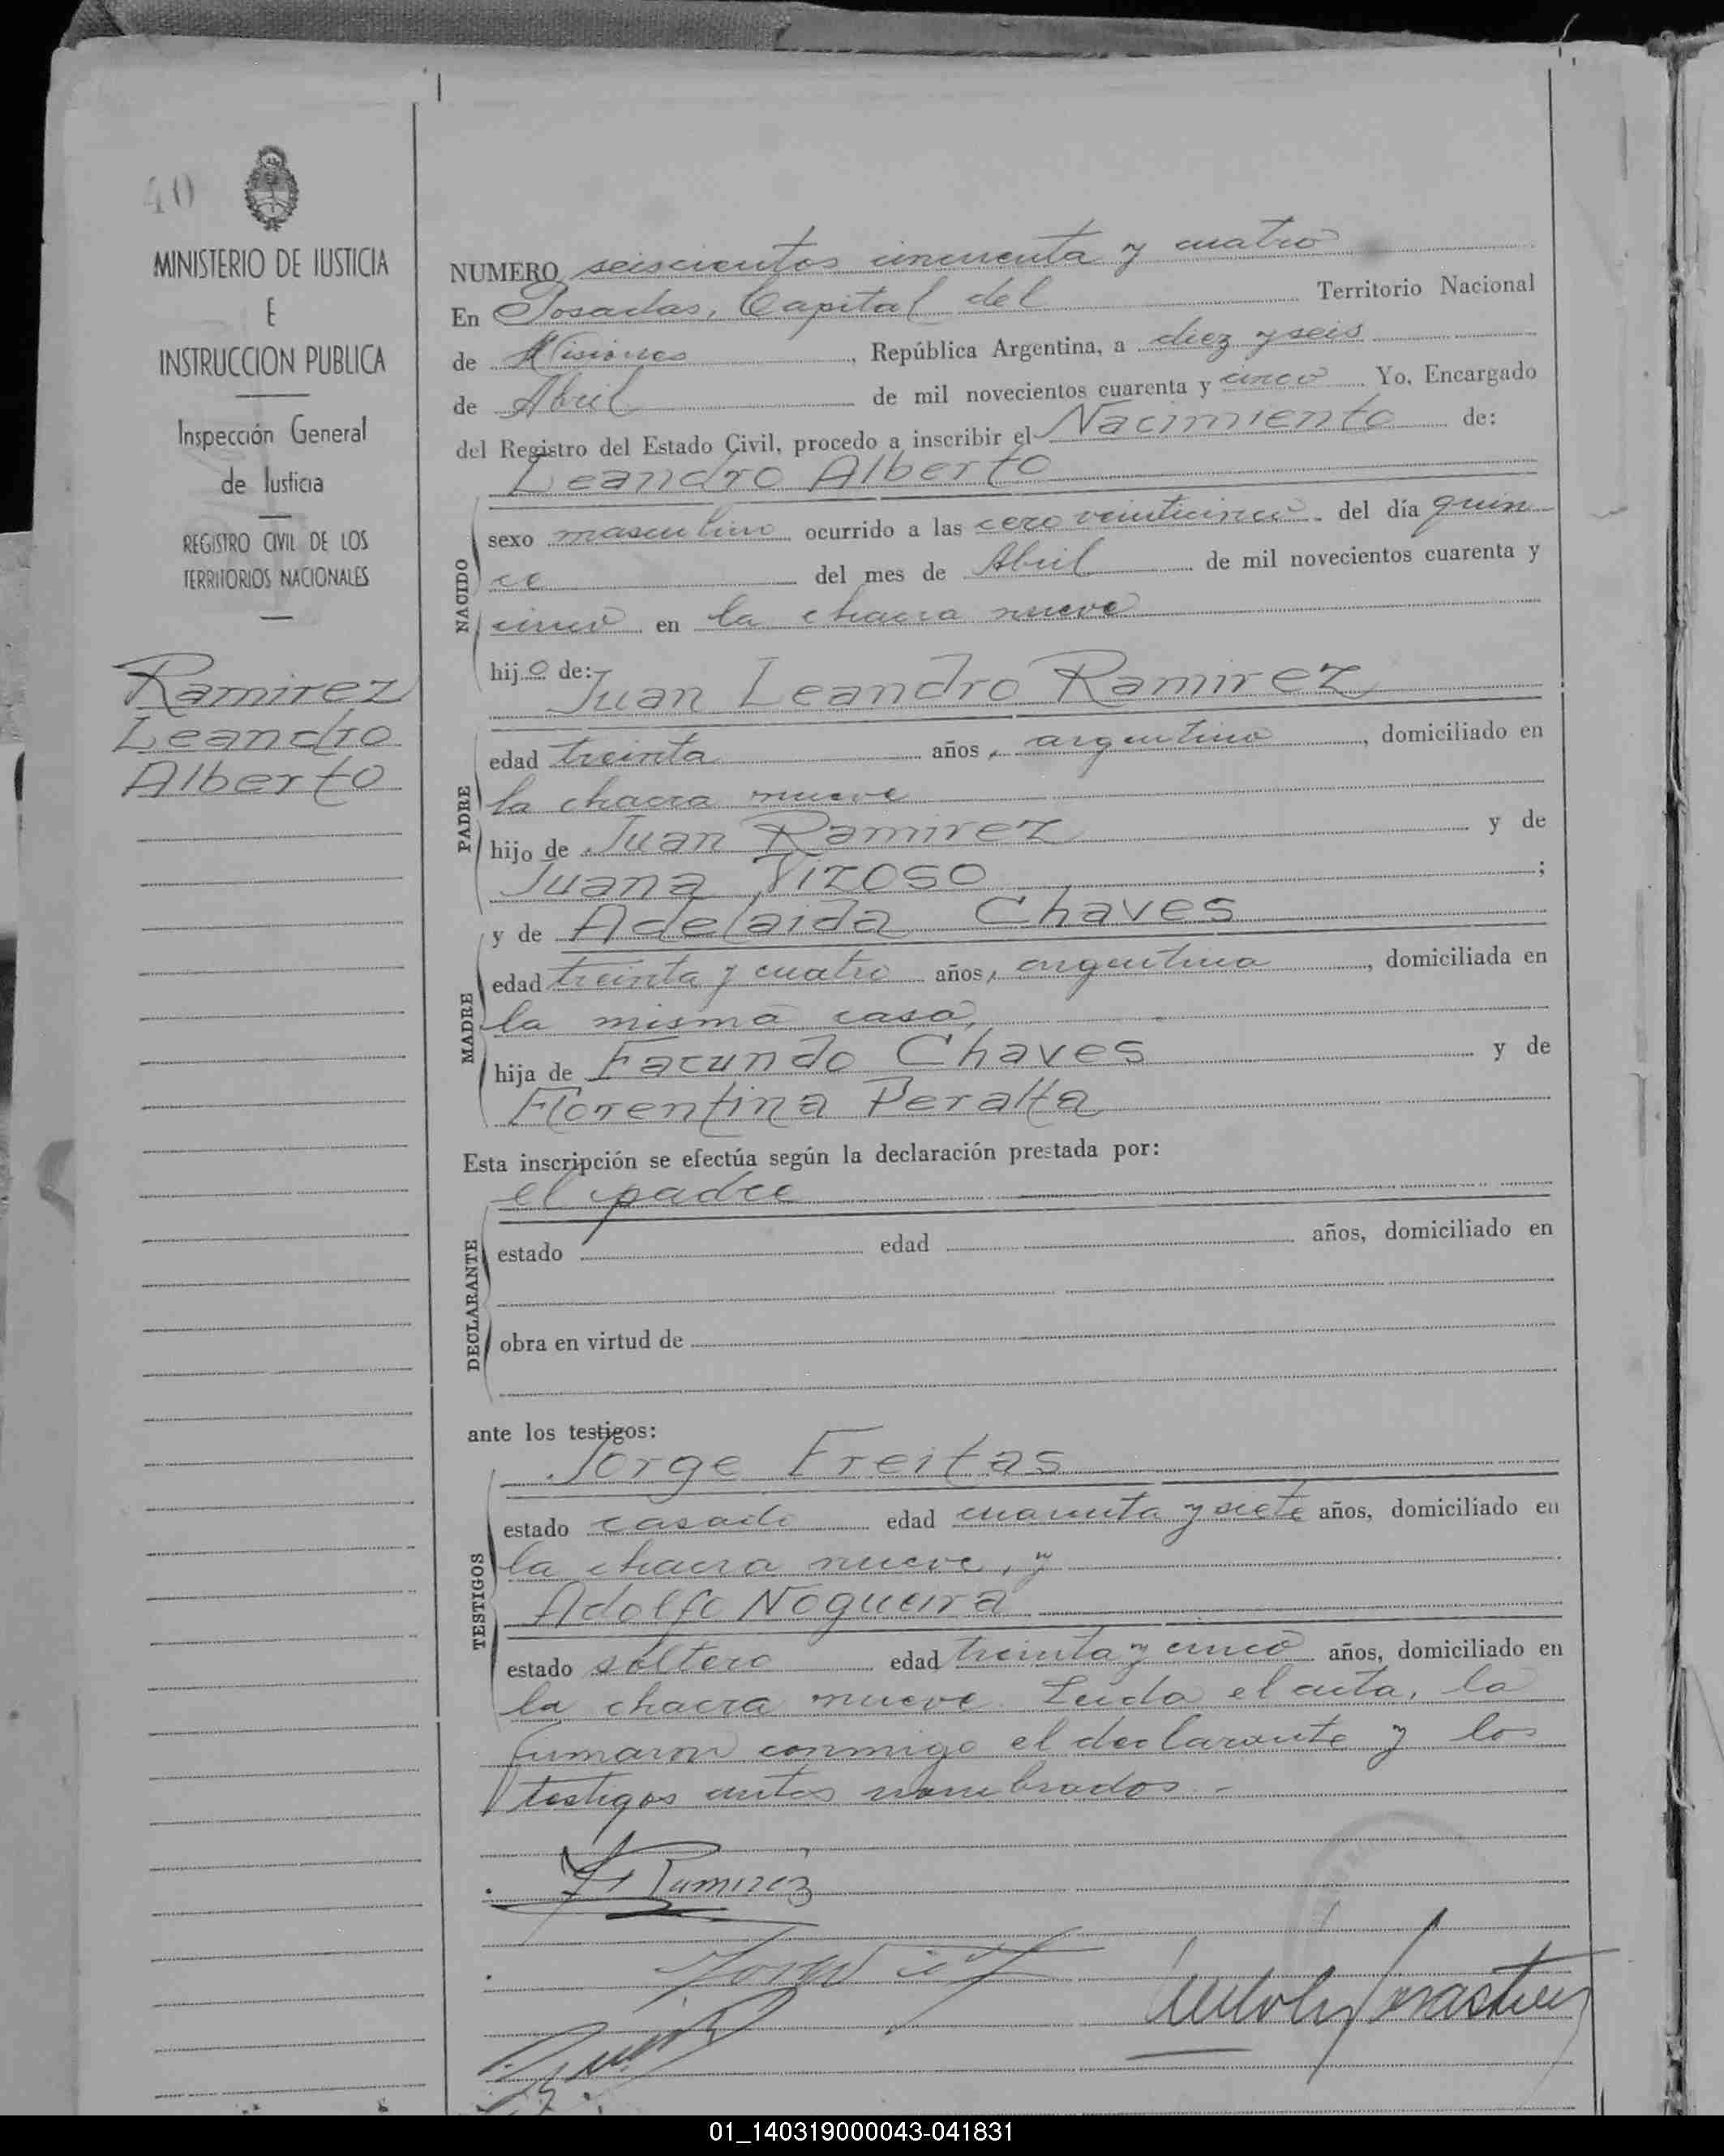 40
MINISTERIO DE JUSTICIA
E
INSTRUCCION PUBLICA
Inspección General
de Justicia
REGISTRO CIVIL DE LOS
TERRITORIOS NACIONALES
Ramirez
Leandro
Alberto
NUMERO seiscientos cincuenta y cuatro
En Posadas, Capital del Territorio Nacional
de Misiones, República Argentina, a diez y seis
de Abril de mil novecientos cuarenta y cinco Yo, Encargado
del Registro del Estado Civil, procedo a inscribir el Nacimiento de:
Leandro Alberto
NACIDO
sexo masculino ocurrido a las cero veinticinco del día quin
ce del mes de Abril de mil novecientos cuarenta y
cinco en la chacra nueve
hijo de:
Juan Leandro Ramirez
PADRE
edad treinta años, argentino, domiciliado en
la chacra nueve
hijo de Juan Ramirez y de
Juana Tizoso;
MADRE
y de Adelaida Chaves
edad treinta y cuatro años, argentina, domiciliada en
la misma casa,
hija de Facundo Chaves y de
Florentina Peralta
Esta inscripción se efectúa según la declaración prestada por:
el padre
DECLARANTE
estado edad años, domiciliado en
obra en virtud de
ante los testigos:
Jorge Freitas
TESTIGOS
estado casado edad cuarenta y siete años, domiciliado en
la chacra nueve, y
Adolfo Nogueira
estado soltero edad treinta y cinco años, domiciliado en
la chacra nueve. Leida el acta, la
firmaron conmigo el declarante y los
testigos antes nombrados.-
Ramirez
01_140319000043-041831